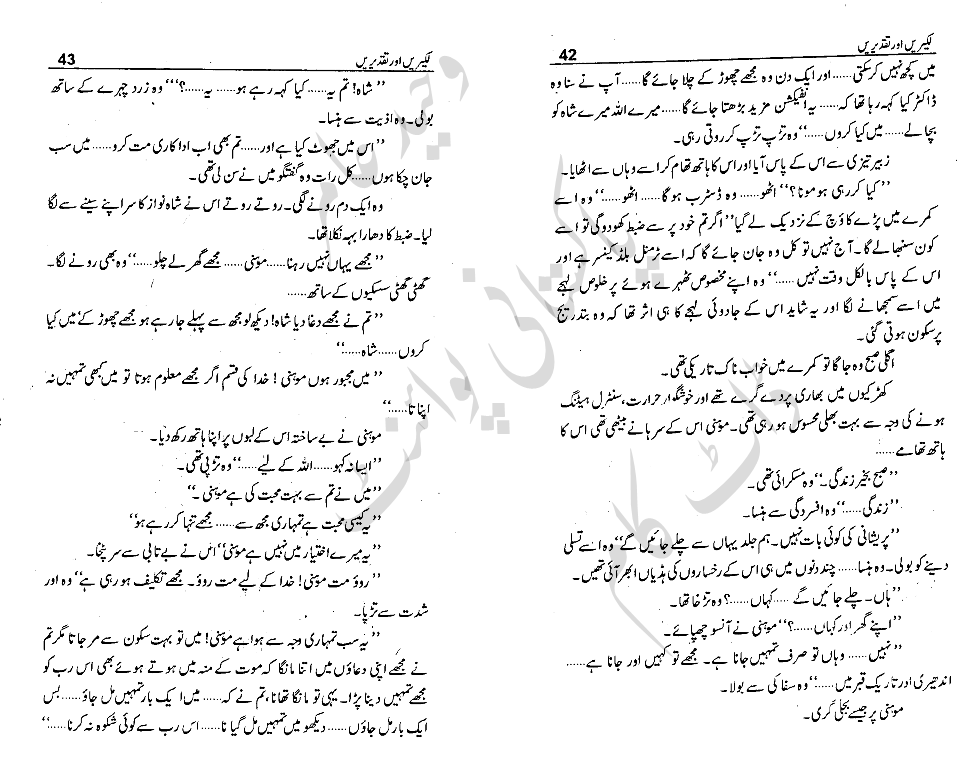 لکیریں اور تقدیریں
42
میں کچھ نہیں کر سکتی...... اور ایک دن وہ مجھے چھوڑ کے چلا جائے گا...... آپ نے سنا وہ
ڈاکٹر کیا کہہ رہا تھا کہ...... یہ انفیکشن مزید بڑھتا جائے گا...... میرے اللہ میرے شاہ کو
بچا لے...... میں کیا کروں......‘‘ وہ تڑپ تڑپ کر روتی رہی۔
زبیر تیزی سے اس کے پاس آیا اور اس کا ہاتھ تھام کر اسے وہاں سے اٹھایا۔
’’کیا کر رہی ہو مونا؟‘‘ اٹھو...... وہ ڈسٹرب ہو گا...... اٹھو......‘‘ وہ اسے
کمرے میں پڑے کاؤچ کے نزدیک لے گیا’’ اگر تم خود پر سے ضبط کھو دو گی تو اسے
کون سنبھالے گا۔ آج نہیں تو کل وہ جان جائے گا کہ اسے ٹرمنل بلڈ کینسر ہے اور
اس کے پاس بالکل وقت نہیں......‘‘ وہ اپنے مخصوص ٹھہرے ہوئے پر خلوص لہجے
میں اسے سمجھانے لگا اور یہ شاید اس کے جادوئی لہجے کا ہی اثر تھا کہ وہ بتدریج
پر سکون ہوتی گئی۔
اگلی صبح وہ جاگا تو کمرے میں خواب ناک تاریکی تھی۔
کھڑکیوں میں بھاری پردے گرے تھے اور خوشگوار حرارت، سنٹرل ہیٹنگ
ہونے کی وجہ سے بہت بھلی محسوس ہو رہی تھی۔ موہنی اس کے سرہانے بیٹھی تھی اس کا
ہاتھ تھامے......
’’صبح بخیر زندگی۔‘‘ وہ مسکرائی تھی۔
’’زندگی......‘‘ وہ افسردگی سے ہنسا۔
’’پریشانی کی کوئی بات نہیں۔ ہم جلد یہاں سے چلے جائیں گے‘‘ وہ اسے تسلی
دینے کو بولی۔ وہ ہنسا...... چند دنوں میں ہی اس کے رخساروں کی ہڈیاں ابھر آئی تھیں۔
’’ہاں۔ چلے جائیں گے...... کہاں......؟ وہ تڑخا تھا۔
’’اپنے گھر اور کہاں......؟‘‘ موہنی نے آنسو چھپائے۔
’’نہیں...... وہاں تو صرف تمہیں جانا ہے۔ مجھے تو کہیں اور جانا ہے......
اندھیری اور تاریک قبر میں......‘‘ وہ سفاکی سے بولا۔
موہنی پر جیسے بجلی گری۔
لکیریں اور تقدیریں
43
’’شاہ! تم یہ...... کیا کہہ رہے ہو...... یہ......؟‘‘‘ وہ زرد چہرے کے ساتھ
بولی۔ وہ اذیت سے ہنسا۔
’’اس میں جھوٹ کیا ہے اور...... تم بھی اب اداکاری مت کرو...... میں سب
جان چکا ہوں...... کل رات وہ گفتگو میں نے سن لی تھی۔
وہ ایک دم رونے لگی۔ روتے روتے اس نے شاہ نواز کا سر اپنے سینے سے لگا
لیا۔ ضبط کا دھارا بہہ نکلا تھا۔
’’مجھے یہاں نہیں رہنا...... موہنی...... مجھے گھر لے چلو......‘‘ وہ بھی رونے لگا۔
گھٹی گھٹی سسکیوں کے ساتھ......
’’تم نے مجھے دغا دیا شاہ! دیکھ لو مجھ سے پہلے جا رہے ہو مجھے چھوڑ کے میں کیا
کروں...... شاہ......‘‘
’’میں مجبور ہوں موہنی! خدا کی قسم اگر مجھے معلوم ہوتا تو میں کبھی تمہیں نہ
اپناتا......‘‘
موہنی نے بے ساختہ اس کے لبوں پر اپنا ہاتھ رکھ دیا۔
’’ایسا نہ کہو...... اللہ کے لیے......‘‘ وہ تڑپی تھی۔
’’میں نے تم سے بہت محبت کی ہے موہنی۔‘‘
’’یہ کیسی محبت ہے تمہاری مجھ سے...... مجھے تنہا کر رہے ہو‘‘
’’یہ میرے اختیار میں نہیں ہے موہنی‘‘ اس نے بے تابی سے سر پٹخا۔
’’روؤ مت موہنی! خدا کے لیے مت روؤ۔ مجھے تکلیف ہو رہی ہے‘‘ وہ اور
شدت سے تڑپا۔
’’یہ سب تمہاری وجہ سے ہوا ہے موہنی! میں تو بہت سکون سے مر جاتا مگر تم
نے مجھے اپنی دعاؤں میں اتنا مانگا کہ موت کے منہ میں ہوتے ہوئے بھی اس رب کو
مجھے تمہیں دینا پڑا۔ یہی تو مانگا تھا نا، تم نے کہ...... میں ایک بار تمہیں مل جاؤ...... بس
ایک بار مل جاؤں...... دیکھو میں تمہیں مل گیا نا...... اس رب سے کوئی شکوہ نہ کرنا......‘‘
پاکستانی پوائنٹ
ڈاٹ کام